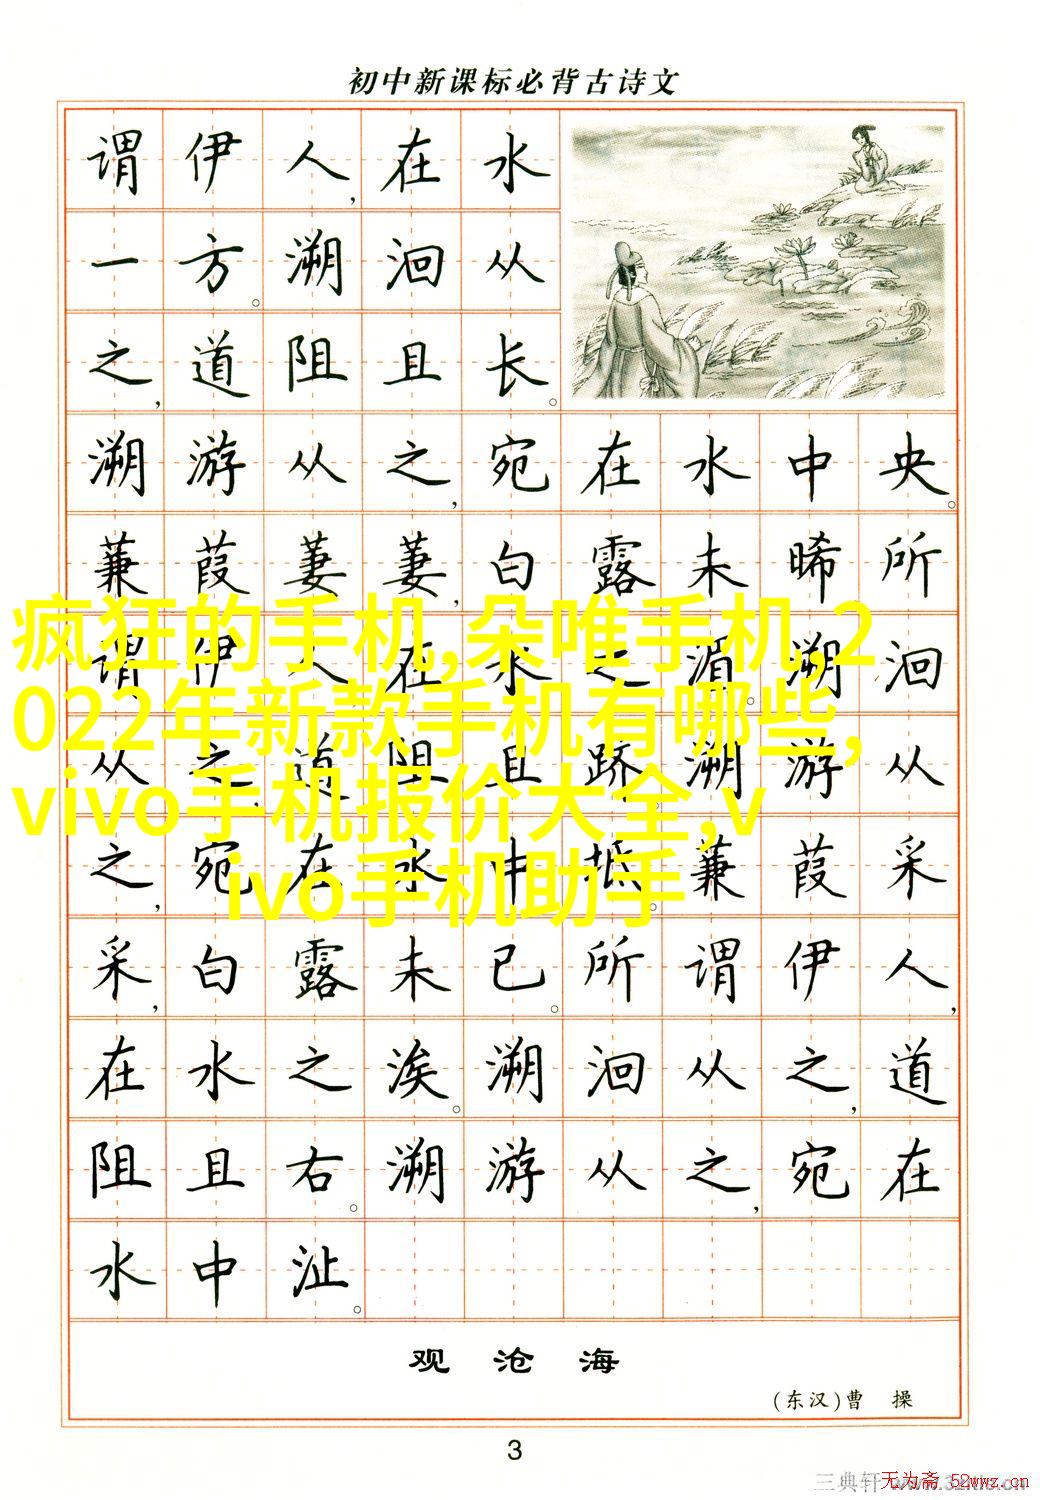 初中新课标必背古诗文
谓伊人,在水
一方。溯洄从
之,道阻且长。
溯游从之,宛在水中央。
蒹葭萋萋,白露未晞所
疯狂的手机,朵唯手机,2
谓伊人在水之湄。溯洄
022年新款手机有哪些,
从之,道阻且跻。溯游从
vivo手机报价大全,v
之,宛在水中坻。蒹葭采
ivo手机助手
采,白露未已。所谓伊人,
在水之涘。溯洄从之,道
阻且右。溯游从之,宛在
水中沚。
观沧海
(东汉)曹操
3
三典轩
无为斋 52wwz.cn